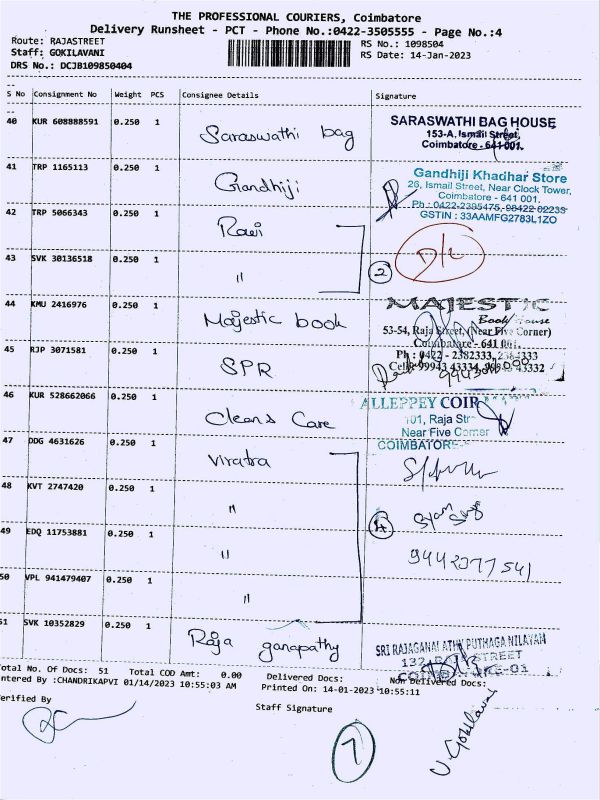 THE PROFESSIONAL COURIERS, Coimbatore
Delivery Runsheet - PCT - Phone No.:0422-3505555 - Page No.:4
Route: RAJASTREET
Staff: GOKILAVANI
DRS No.: DCJB109850404
RS No.: 1098504
RS Date: 14-Jan-2023
S No Consignment No Weight PCS Consignee Details Signature
40 KUR 608888591 0.250 1 Saraswathi bag
SARASWATHI BAG HOUSE
153-A, Ismail Street,
Coimbatore - 641 001.
41 TRP 1165113 0.250 1 Gandhiji
Gandhiji Khadhar Store
26, Ismail Street, Near Clock Tower,
Coimbatore - 641 001.
Ph : 0422-2385475, 98422 02233
GSTIN : 33AAMFG2783L1ZO
42 TRP 5066343 0.250 1 Ravi
D/L
43 SVK 30136518 0.250 1 "
2
44 KMU 2416976 0.250 1 Majestic book
MAJESTIC
Book House
53-54, Raja Street, (Near Five Corner)
Coimbatore - 641 001.
Ph : 0422 - 2382333,
Cell : 99943 43334,
45 RJP 3071581 0.250 1 SPR
46 KUR 528662066 0.250 1 Cleans Care
ALLEPPEY COIR
101, Raja Str
Near Five Corner
COIMBATORE
47 DDG 4631626 0.250 1 Viratra
48 KVT 2747420 0.250 1 "
4
49 EDQ 11753881 0.250 1 "
9442377541
50 VPL 941479407 0.250 1 "
51 SVK 10352829 0.250 1 Raja ganapathy
SRI RAJAGANAPATHY PUTHAGA NILAYAM
132, RAJA STREET
COIMBATORE-01
Total No. Of Docs: 51 Total COD Amt: 0.00 Delivered Docs: Non Delivered Docs:
Entered By :CHANDRIKAPVI 01/14/2023 10:55:03 AM Printed On: 14-01-2023 10:55:11
Verified By Staff Signature
7
U. Gokilavani